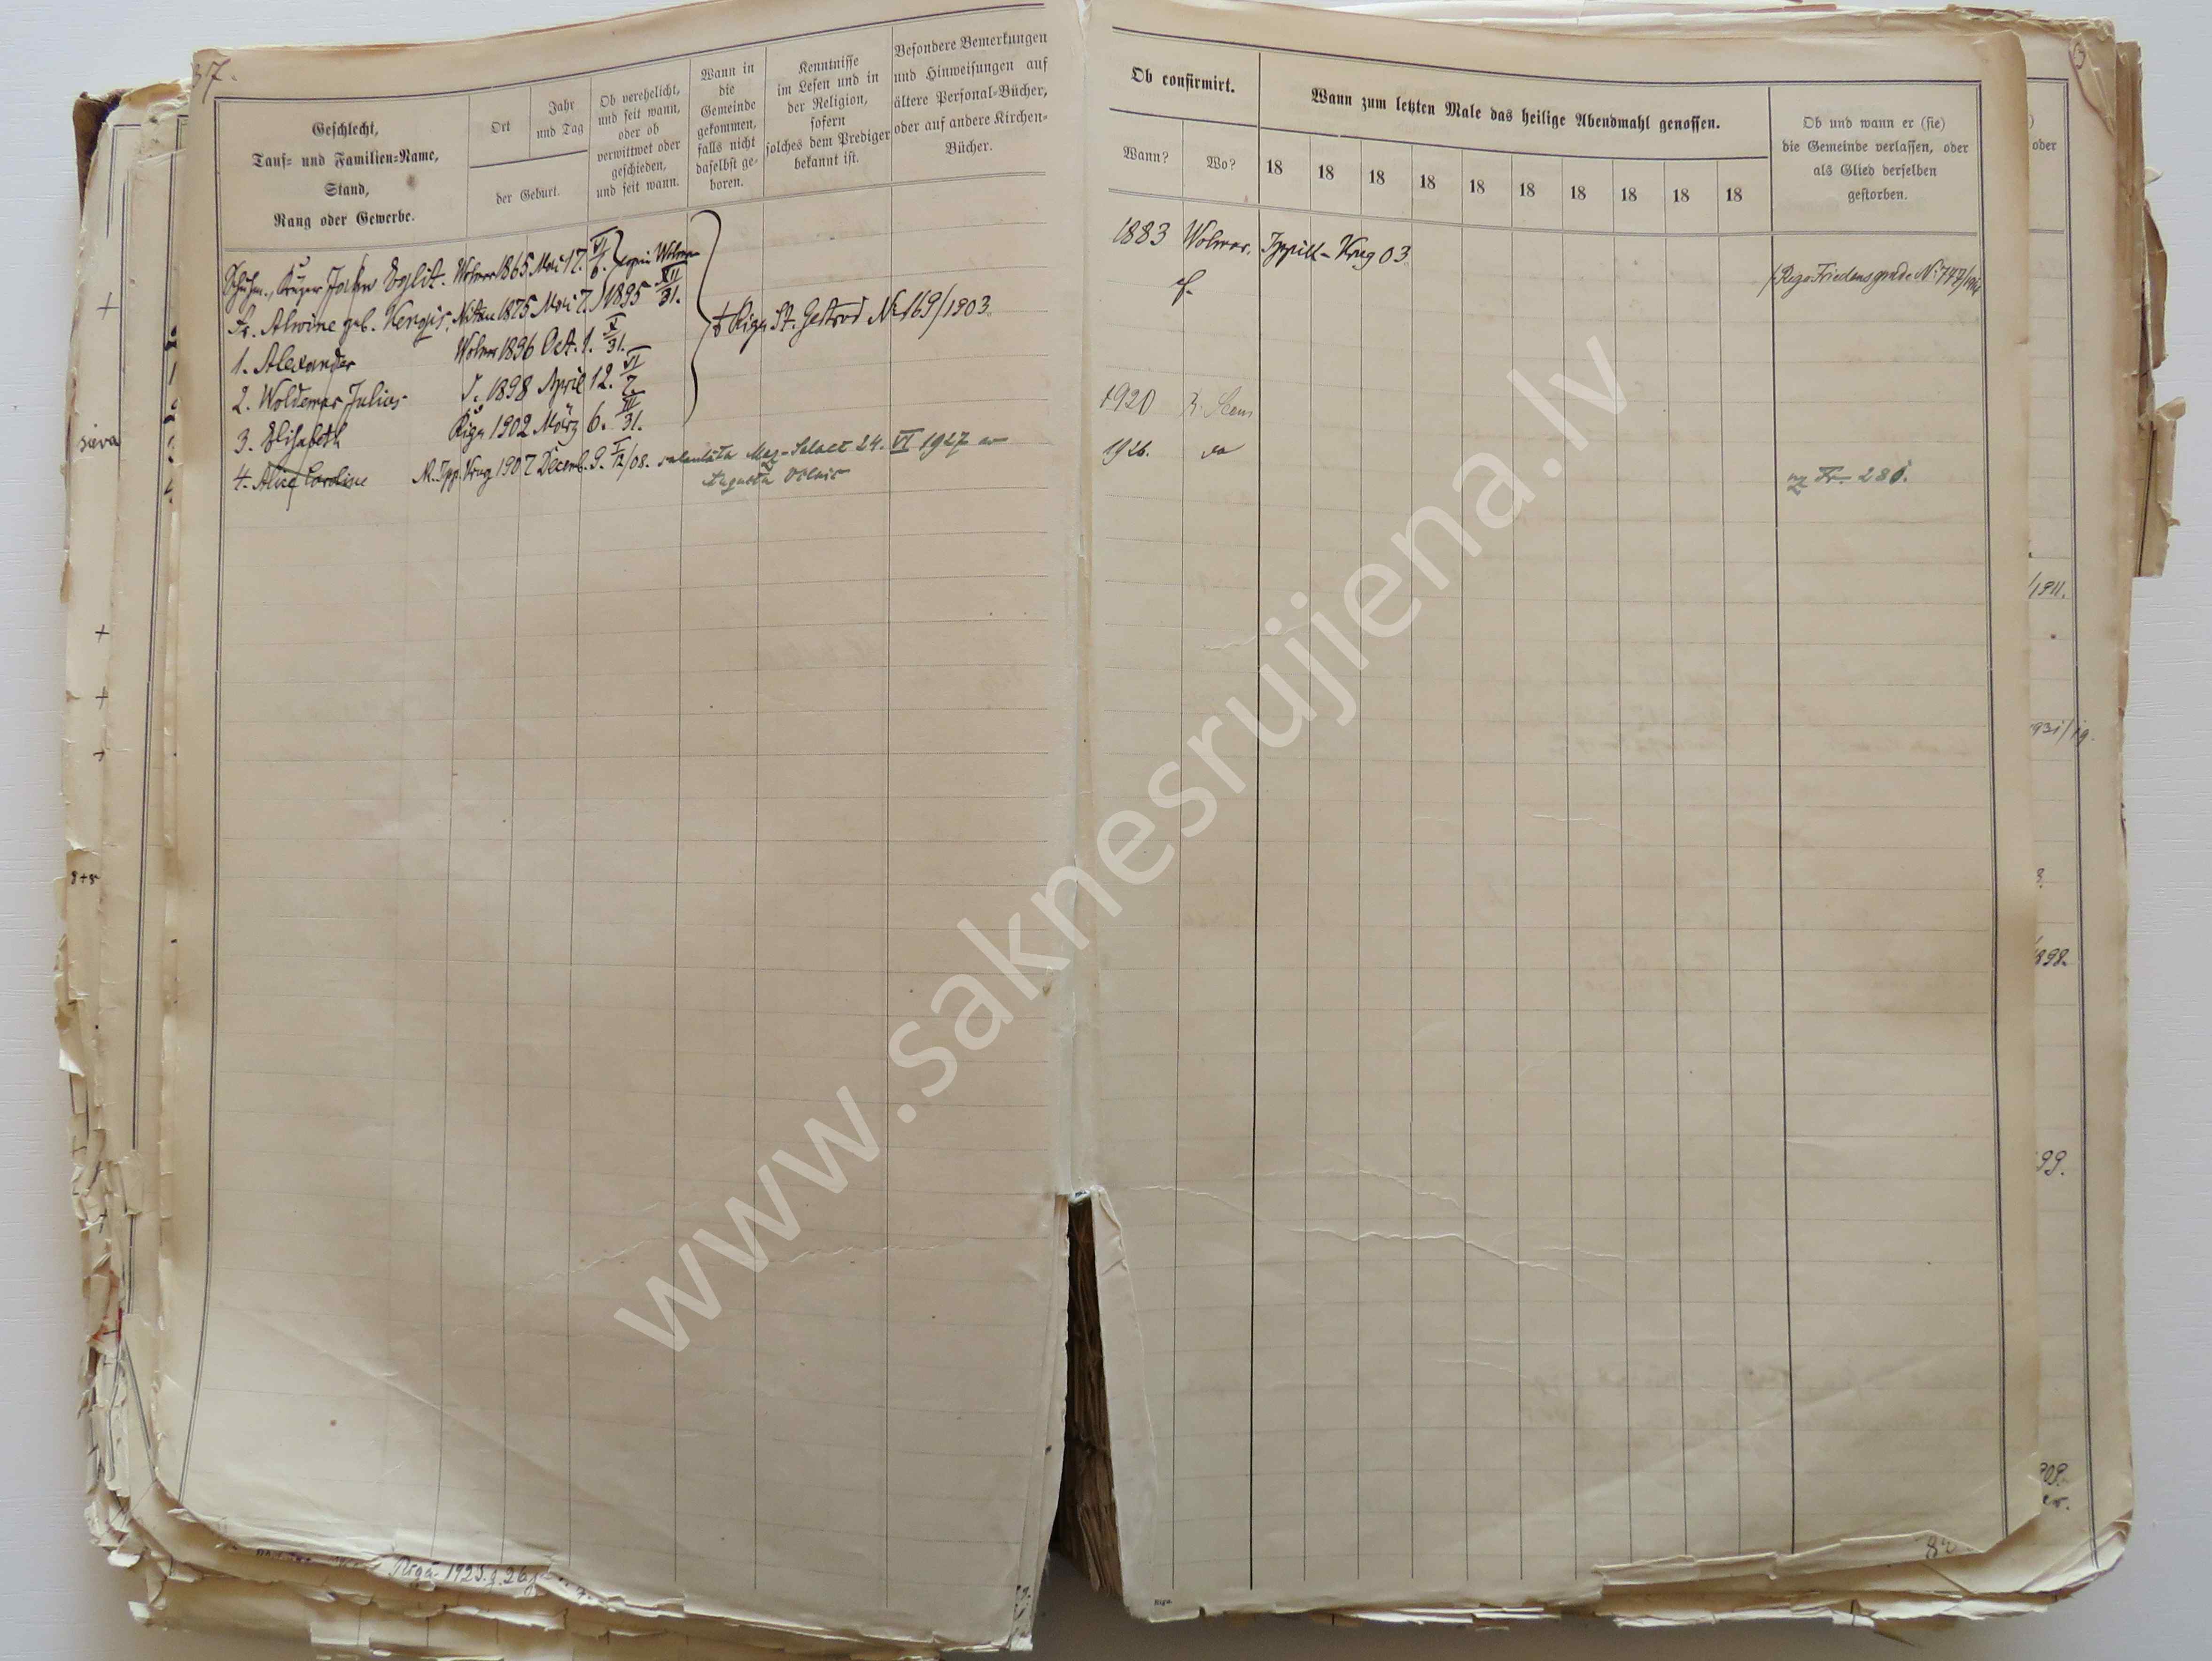 37.
Geschlecht,
Tauf= und Familien=Name,
Stand,
Rang oder Gewerbe.
Ort
Jahr
und Tag
der Geburt.
Ob verehelicht,
und seit wann,
oder ob
verwittwet oder
geschieden,
und seit wann.
Wann in
die
Gemeinde
gekommen,
falls nicht
daselbst ge-
boren.
Kenntnisse
im Lesen und in
der Religion,
sofern
solches dem Prediger
bekannt ist.
Besondere Bemerkungen
und Hinweisungen auf
ältere Personal=Bücher,
oder auf andere Kirchen=
Bücher.
Krüger Jahn Eglit. Wolmar 1865 Mai 17. VI/6. Wolmar
Fr. Alwine geb. Kengis, Nitau 1875 Mai 7. 1895 XII/31.
1. Alexander Wolmar 1896 Oct. 1. X/31.
† Riga St. Gertrud № 169/1903.
2. Woldemar Julius J. 1898 April 12. VI/7.
3. Elisabeth Riga 1902 März 6. III/31.
4. Alice Caroline N. Ipp. Krug 1907 Decemb. 9. I/12/08. salaulāta Maz-Salacē 24. VI 1927 ar
Augustu
Ob confirmirt.
Wann?
Wo?
Wann zum letzten Male das heilige Abendmahl genossen.
18 18 18 18 18 18 18 18 18 18
Ob und wann er (sie)
die Gemeinde verlassen, oder
als Glied derselben
gestorben.
1883 Wolmar. Ippik-Krug 03.
Riga Friedensgmde №
1920
1926.
uz Fr. 280.
sieva
/1911.
1931/
1898.
99.
908.
Rīgā 1925. g. 26
Riga.
www.saknesrujiena.lv